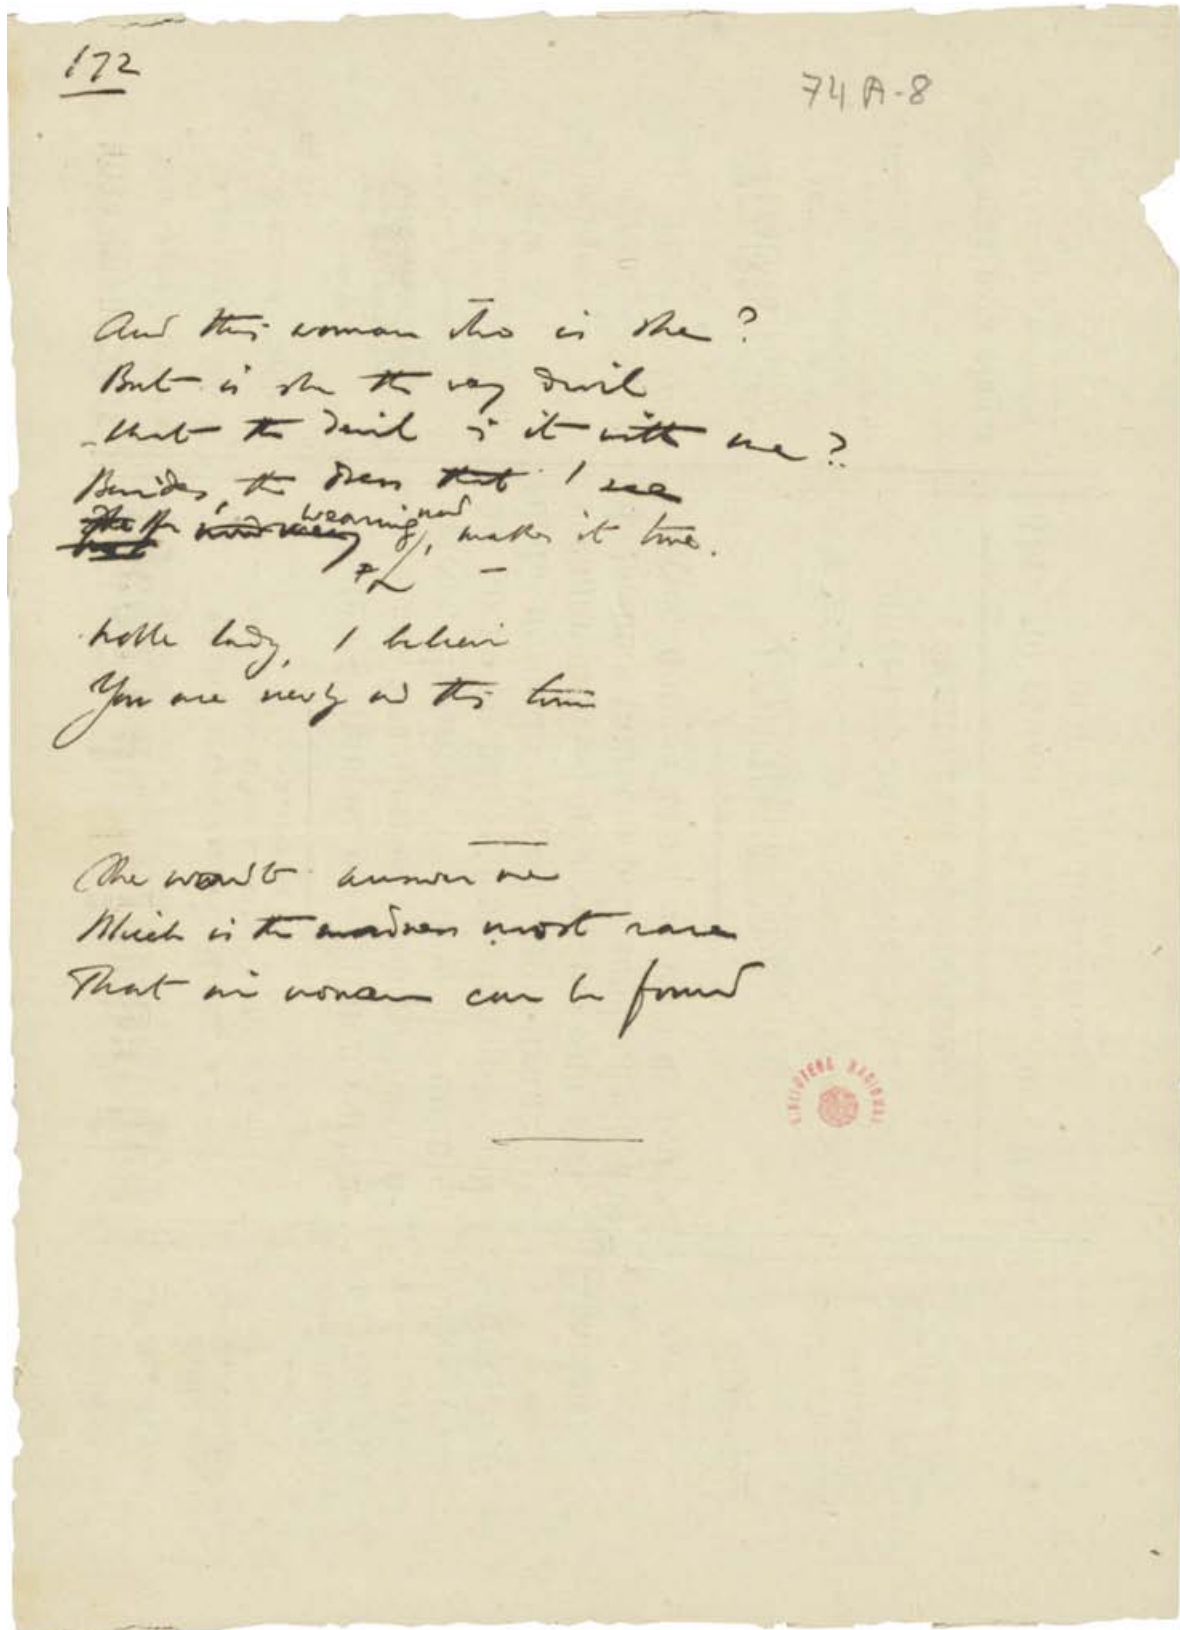 172
74A-8
And this woman who is she?
But is she the very devil
What the devil is it with me?
Besides, the dress that I see
She is wearing now, makes it true.
Noble lady, I believe
You are newly on this
She won't answer me
Which is the madness most rare
That in woman can be found
BIBLIOTECA NACIONAL